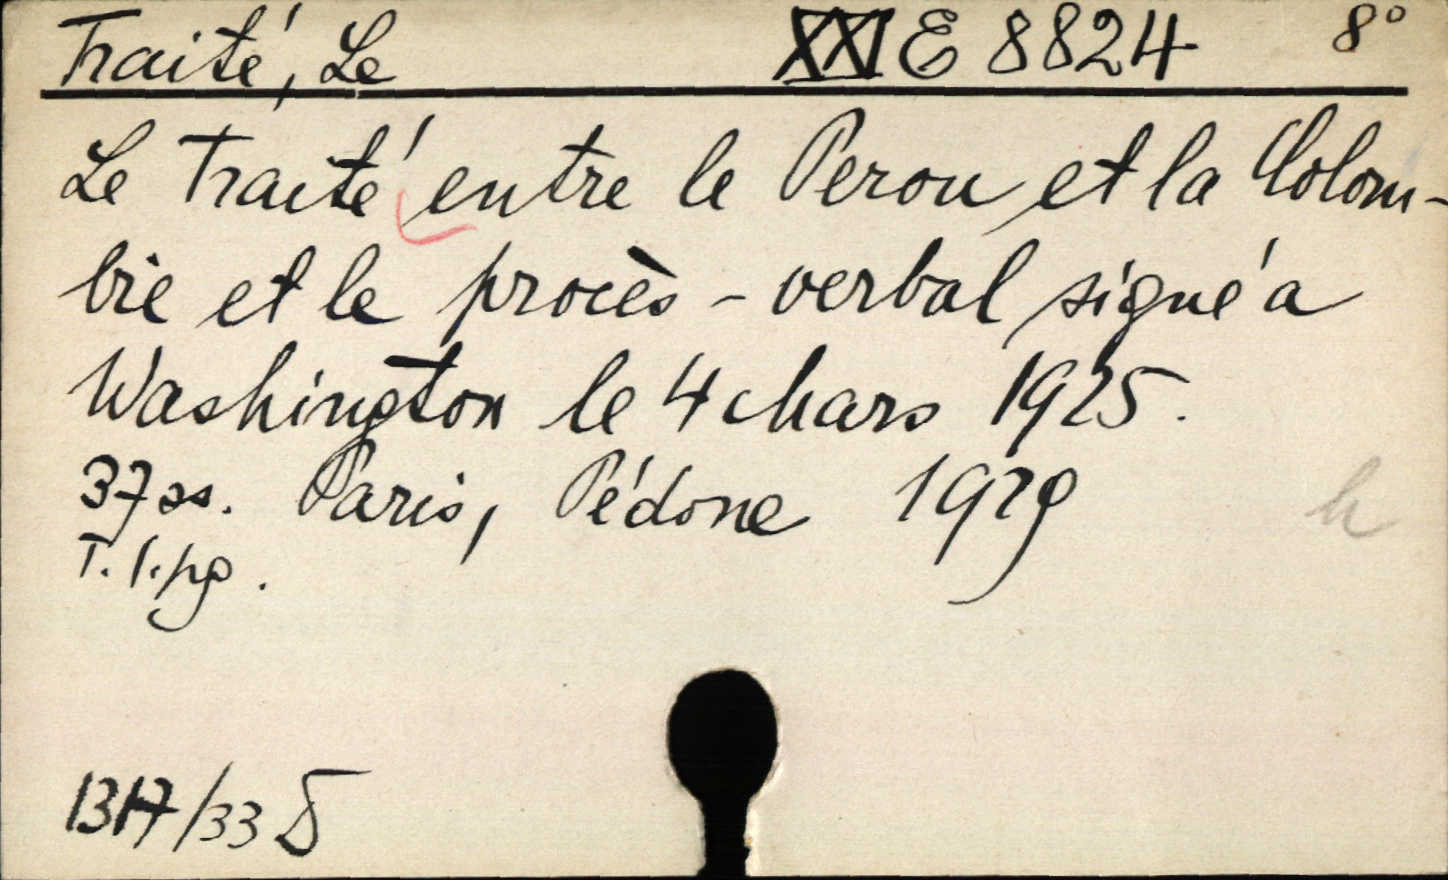 Traité, Le XXI E 8824 8°
Le Traité entre le Perou et la Colom-
bie et le procès-verbal signé a
Washington le 4 Mars 1925.
37 ss. Paris, Pédone 1929
h
T. l. pg.
1317/33 D